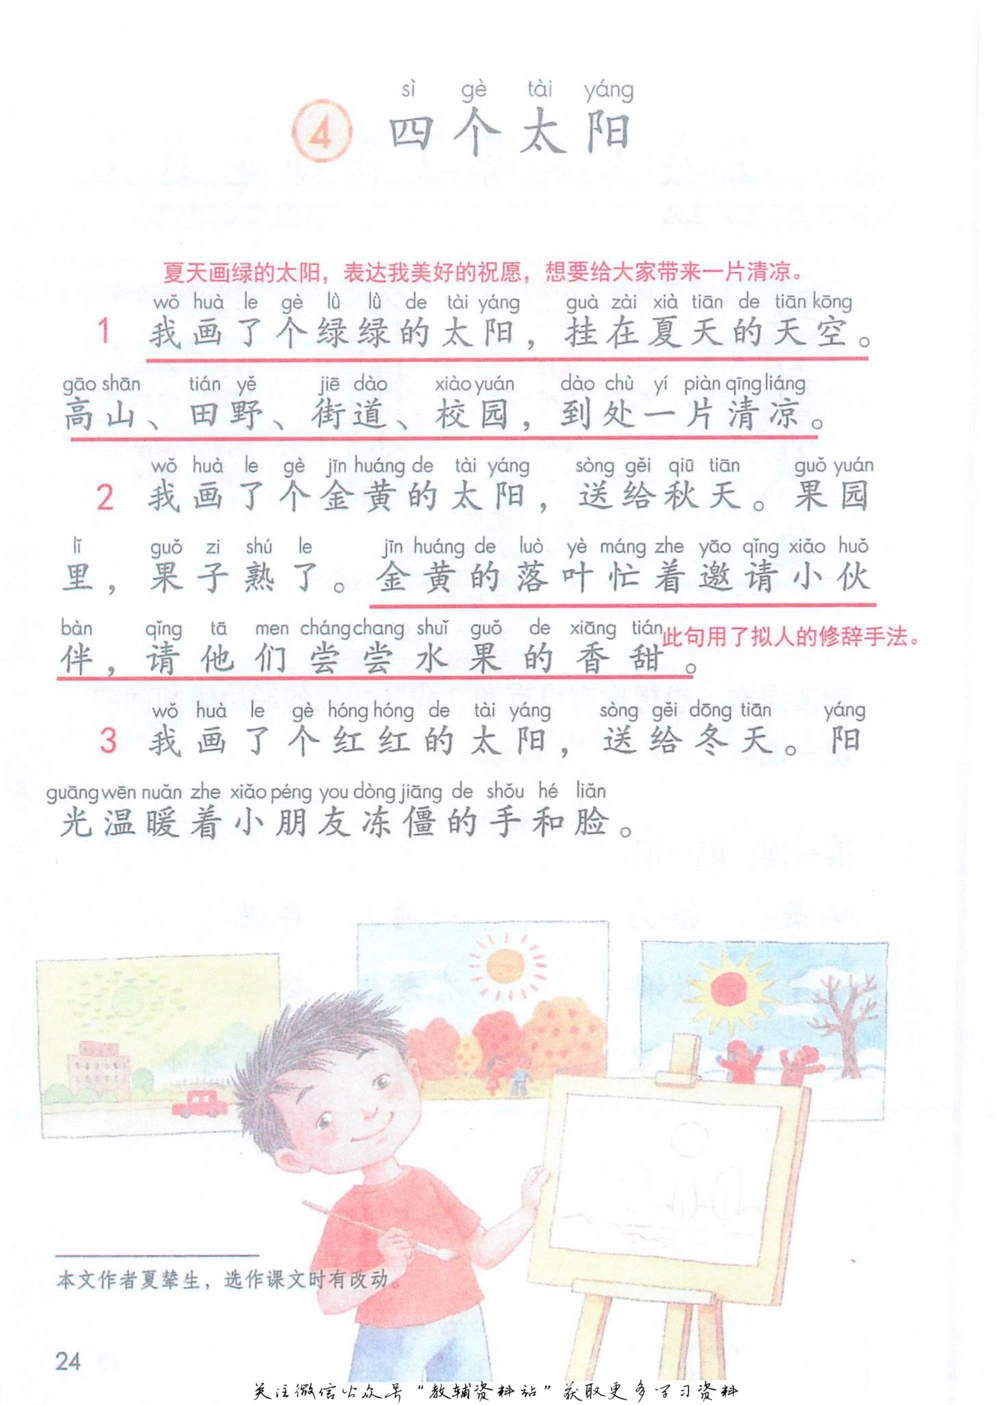 sì gè tài yáng
4 四个太阳
夏天画绿的太阳，表达我美好的祝愿，想要给大家带来一片清凉。
wǒ huà le gè lǜ lǜ de tài yáng guà zài xià tiān de tiān kōng
1 我画了个绿绿的太阳，挂在夏天的天空。
gāo shān tián yě jiē dào xiào yuán dào chù yí piàn qīng liáng
高山、田野、街道、校园，到处一片清凉。
wǒ huà le gè jīn huáng de tài yáng sòng gěi qiū tiān guǒ yuán
2 我画了个金黄的太阳，送给秋天。果园
lǐ guǒ zi shú le jīn huáng de luò yè máng zhe yāo qǐng xiǎo huǒ
里，果子熟了。金黄的落叶忙着邀请小伙
bàn qǐng tā men cháng chang shuǐ guǒ de xiāng tián
伴，请他们尝尝水果的香甜。
此句用了拟人的修辞手法。
wǒ huà le gè hóng hóng de tài yáng sòng gěi dōng tiān yáng
3 我画了个红红的太阳，送给冬天。阳
guāng wēn nuǎn zhe xiǎo péng you dòng jiāng de shǒu hé liǎn
光温暖着小朋友冻僵的手和脸。
本文作者夏辇生，选作课文时有改动。
24
关注微信公众号“教辅资料站”获取更多学习资料